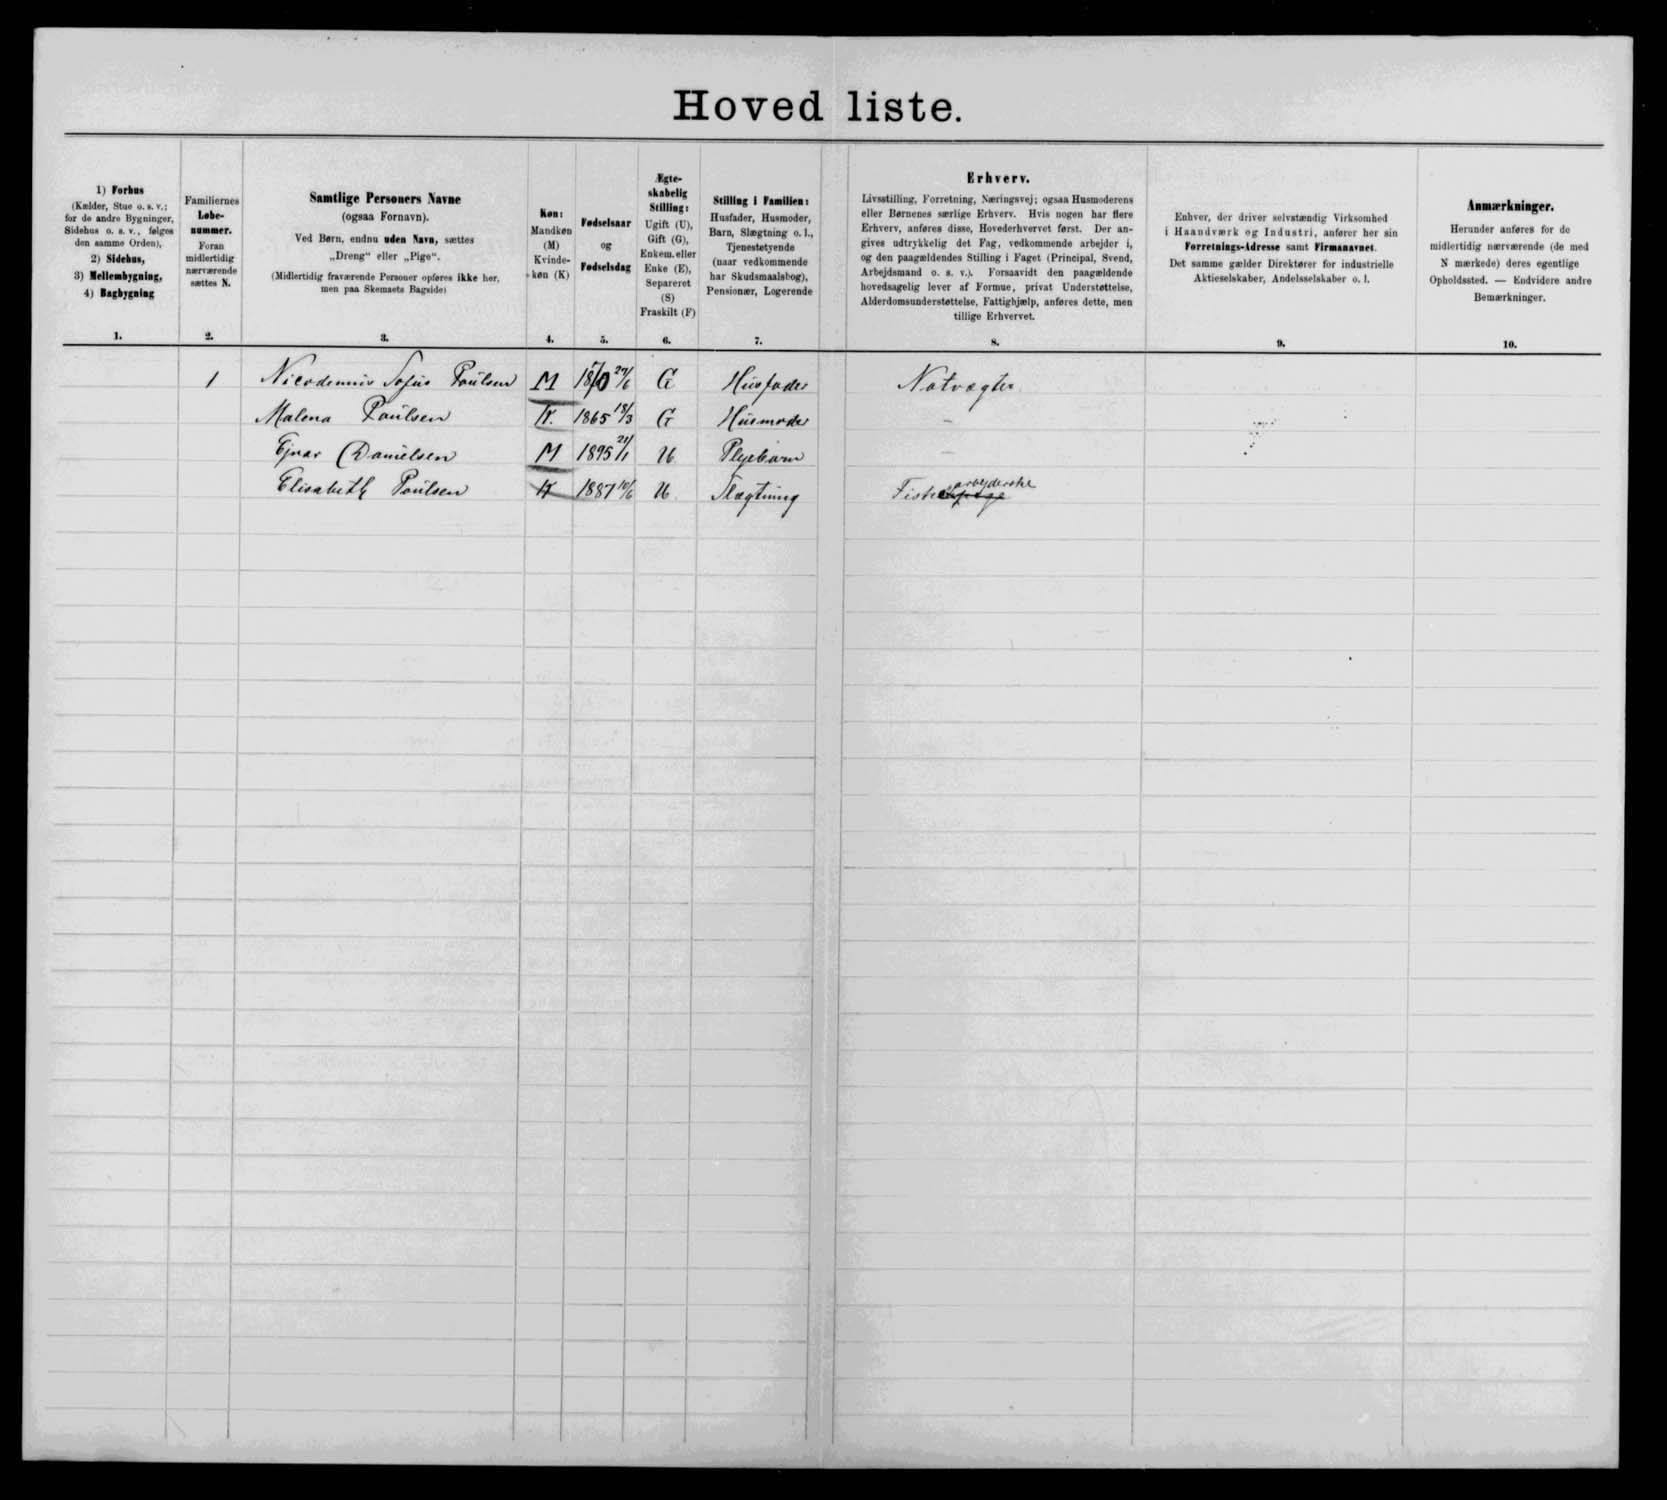 Hoved liste.
1) Forhus
(Kælder, Stue o. s. v.;
for de andre Bygninger,
Sidehus o. s. v., følges
den samme Orden),
2) Sidehus,
3) Mellembygning,
4) Bagbygning
1.
Familiernes
Løbe-
nummer.
Foran
midlertidig
nærværende
sættes N.
2.
Samtlige Personers Navne
(ogsaa Fornavn).
Ved Børn, endnu uden Navn, sættes
„Dreng“ eller „Pige“.
(Midlertidig fraværende Personer opføres ikke her,
men paa Skemaets Bagside)
3.
Køn:
Mandkøn
(M)
Kvinde-
køn (K)
4.
Fødselsaar
og
Fødselsdag
5.
Ægte-
skabelig
Stilling:
Ugift (U),
Gift (G),
Enkem. eller
Enke (E),
Separeret
(S)
Fraskilt (F)
6.
Stilling i Familien:
Husfader, Husmoder,
Barn, Slægtning o. l.,
Tjenestetyende
(naar vedkommende
har Skudsmaalsbog),
Pensionær, Logerende
7.
Erhverv.
Livsstilling, Forretning, Næringsvej; ogsaa Husmoderens
eller Børnenes særlige Erhverv. Hvis nogen har flere
Erhverv, anføres disse, Hovederhvervet først. Der an-
gives udtrykkelig det Fag, vedkommende arbejder i,
og den paagældendes Stilling i Faget (Principal, Svend,
Arbejdsmand o. s. v.). Forsaavidt den paagældende
hovedsagelig lever af Formue, privat Understøttelse,
Alderdomsunderstøttelse, Fattighjælp, anføres dette, men
tillige Erhvervet.
8.
Enhver, der driver selvstændig Virksomhed
i Haandværk og Industri, anfører her sin
Forretnings-Adresse samt Firmanavnet.
Det samme gælder Direktører for industrielle
Aktieselskaber, Andelsselskaber o. l.
9.
Anmærkninger.
Herunder anføres for de
midlertidig nærværende (de med
N mærkede) deres egentlige
Opholdssted. — Endvidere andre
Bemærkninger.
10.
1 Nicodemus Sofus Poulsen M 1870 27/6 G Husfader Natvægter
Malena Poulsen K. 1865 18/3 G Husmoder -
Ejnar Danielsen M 1895 21/1 U Plejebarn -
Elisabeth Poulsen K 1887 10/6 U Slægtning Fiskearbejderske